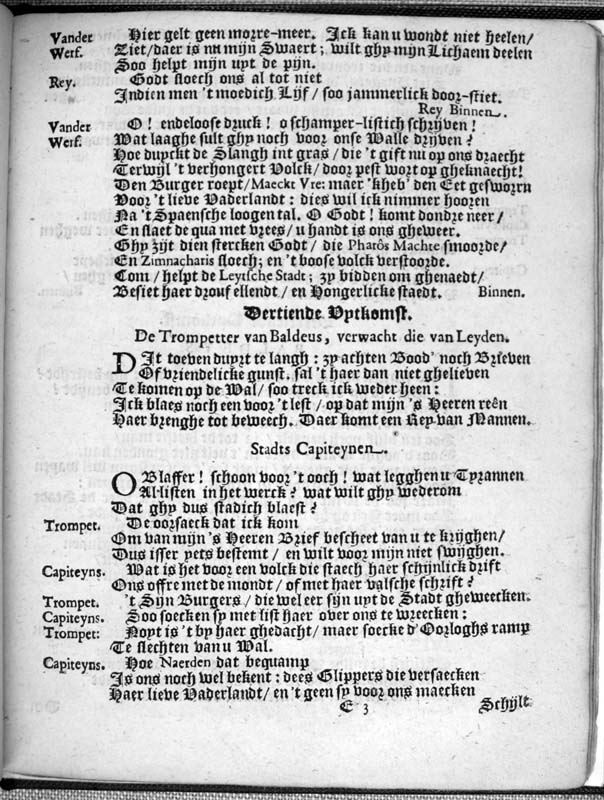 Vander Hier gelt geen morre-meer. Ick kan u wondt niet heelen/
Werf. Ziet/daer is nu mijn Swaert; wilt ghy mijn Lichaem deelen
Soo helpt mijn uyt de pijn.
Rey. Godt sloech ons al tot niet
Indien men 't moedich Lijf/ soo jammerlick door-stiet.
Rey Binnen.
Vander O! endeloose druck! o schamper-listich schrijven!
Werf. Wat laaghe sult ghy noch voor onse Walle drijven?
Hoe duyckt de Slangh int gras/ die 't gift nu op ons draecht
Terwijl 't verhongert Volck/ door pest wort op gheknaecht!
Den Burger roept/ Maeckt Vre: maer 'kheb' den Eet gesworn
Voor 't lieve Vaderlandt: dies wil ick nimmer hooren
Na 't Spaensche loogen tal. O Godt! komt dondre neer/
En slaet de qua met vrees/ u handt is ons gheweer.
Ghy zijt dien stercken Godt/ die Pharôs Machte smoorde/
En Zimnacharis sloech; en 't boose volck verstoorde.
Com/ helpt de Leytsche Stadt; zy bidden om ghenaedt/
Besiet haer drouf ellendt/ en Hongerlicke staedt. Binnen.
Dertiende Uytkomst.
De Trompetter van Baldeus, verwacht die van Leyden.
DIt toeven duyrt te langh: zy achten Bood' noch Brieven
Of vriendelicke gunst. sal 't haer dan niet ghelieven
Te komen op de Wal/ soo treck ick weder heen:
Ick blaes noch een voor 't lest/ op dat mijn 's Heeren reên
Haer brenghe tot beweech. Daer komt een Rey van Mannen.
Stadts Capiteynen.
O Blaffer! schoon voor 't ooch! wat legghen u Tyrannen
Al-listen in het werck? wat wilt ghy wederom
Dat ghy dus stadich blaest?
Trompet. De oorsaeck dat ick kom
Om van mijn 's Heeren Brief bescheet van u te krijghen/
Dus isser yets bestemt/ en wilt voor mijn niet swijghen.
Capiteyns. Wat is het voor een volck die staech haer schijnlick drift
Ons offre met de mondt/ of met haer valsche schrift?
Trompet. 't Sijn Burgers/ die wel eer sijn uyt de Stadt gheweecken.
Capiteyns. Soo soecken sy met list haer over ons te wreecken:
Trompet: Noyt is 't by haer ghedacht/ maer soecke d'Oorloghs ramp
Te slechten van u Wal.
Capiteyns. Hoe Naerden dat bequamp
Is ons noch wel bekent: dees Glippers die versaecken
Haer lieve Vaderlandt/ en 't geen sy voor ons maecken
E 3 Schijlt